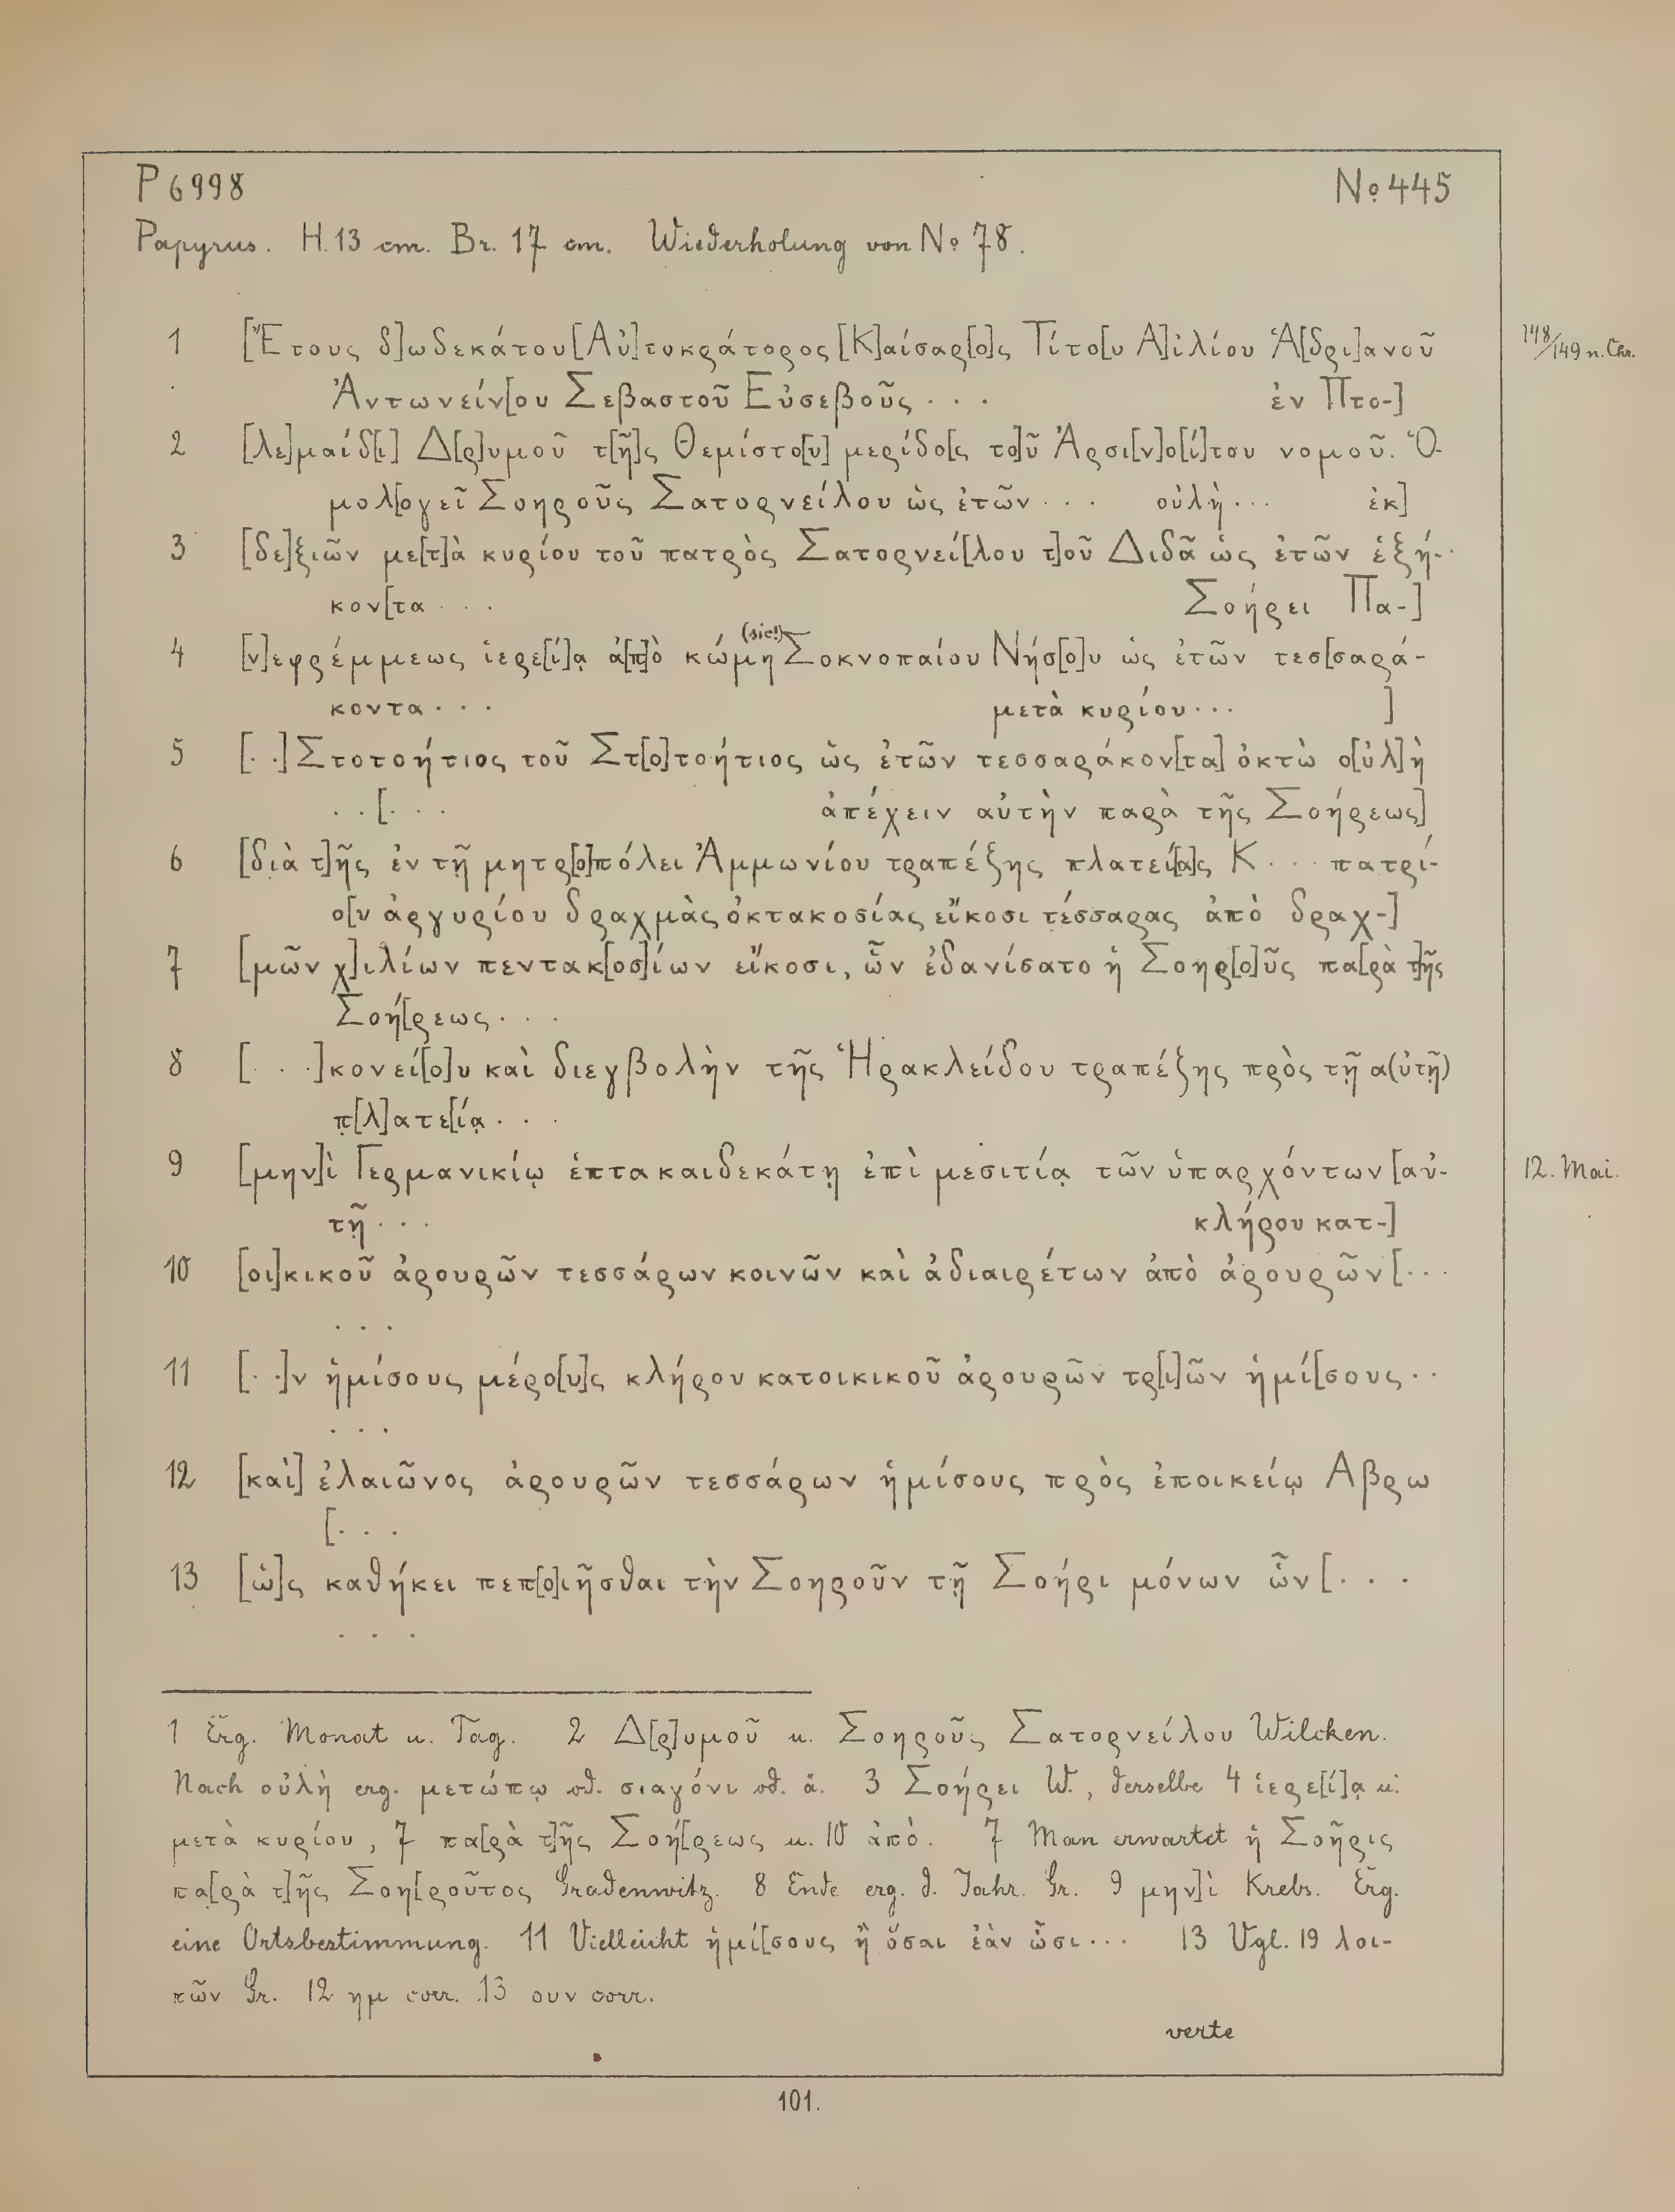 P 6998 No 445
Papyrus. H. 13 cm. Br. 17 cm. Wiederholung von No 78.
1 [Ἔτους δ]ωδεκάτου [Αὐ]τοκράτορος [Κ]αίσαρ[ο]ς Τίτο[υ Α]ἰλίου Ἁ[δρι]ανοῦ 148/149 n. Chr.
Ἀντωνείν[ου Σεβαστοῦ Εὐσεβοῦς · · · ἐν Πτο-]
2 [λε]μαίδ[ι] Δ[ρ]υμοῦ τ[ῆ]ς Θεμίστο[υ] μερίδο[ς το]ῦ Ἀρσι[ν]ο[ί]του νομοῦ. Ὁ-
μολ[ογεῖ Σοηροῦς Σατορνείλου ὡς ἐτῶν · · · οὐλὴ · · · ἐκ]
3 [δε]ξιῶν με[τ]ὰ κυρίου τοῦ πατρὸς Σατορνεί[λου τ]οῦ Διδᾶ ὡς ἐτῶν ἑξή-
κον[τα · · · Σοήρει Πα-]
4 [ν]εφρέμμεως ἱερε[ί]ᾳ ἀ[π]ὸ κώμη (sic!) Σοκνοπαίου Νήσ[ο]υ ὡς ἐτῶν τεσ[σαρά-
κοντα · · · μετὰ κυρίου · · · ]
5 [· ·] Στοτοήτιος τοῦ Στ[ο]τοήτιος ὡς ἐτῶν τεσσαράκον[τα] ὀκτὼ ο[ὐλ]ὴ
· · [· · · ἀπέχειν αὐτὴν παρὰ τῆς Σοήρεως]
6 [διὰ τ]ῆς ἐν τῇ μητρ[ο]πόλει Ἀμμωνίου τραπέζης πλατεί[α]ς Κ · · · πατρί-
ο[ν ἀργυρίου δραχμὰς ὀκτακοσίας εἴκοσι τέσσαρας ἀπὸ δραχ-]
7 [μῶν χ]ιλίων πεντακ[οσ]ίων εἴκοσι, ὧν ἐδανίσατο ἡ Σοηρ[ο]ῦς πα[ρὰ τ]ῆς
Σοή[ρεως · · ·
8 [· · ·]κονεί[ο]υ καὶ διεγβολὴν τῆς Ἡρακλείδου τραπέζης πρὸς τῇ α(ὐτῇ)
π[λ]ατε[ίᾳ · · ·
9 [μην]ὶ Γερμανικίῳ ἑπτακαιδεκάτῃ ἐπὶ μεσιτίᾳ τῶν ὑπαρχόντων [αὐ- 12. Mai.
τῇ · · · κλήρου κατ-]
10 [οι]κικοῦ ἀρουρῶν τεσσάρων κοινῶν καὶ ἀδιαιρέτων ἀπὸ ἀρουρῶν [· · ·
· · ·
11 [· ·]ν ἡμίσους μέρο[υ]ς κλήρου κατοικικοῦ ἀρουρῶν τρ[ι]ῶν ἡμί[σους · ·
· · ·
12 [καὶ] ἐλαιῶνος ἀρουρῶν τεσσάρων ἡμίσους πρὸς ἐποικείῳ Αβρω
[· · ·
13 [ὡ]ς καθήκει πεπ[ο]ιῆσθαι τὴν Σοηροῦν τῇ Σοήρι μόνων ὧν [· · ·
· · ·
1 Erg. Monat u. Tag. 2 Δ[ρ]υμοῦ u. Σοηροῦς Σατορνείλου Wilcken.
Nach οὐλὴ erg. μετώπῳ od. σιαγόνι od. ä. 3 Σοήρει W., derselbe 4 ἱερε[ί]ᾳ u.
μετὰ κυρίου, 7 πα[ρὰ τ]ῆς Σοή[ρεως u. 10 ἀπό. 7 Man erwartet ἡ Σοῆρις
πα[ρὰ τ]ῆς Σοη[ροῦτος Gradenwitz. 8 Ende erg. d. Jahr. Gr. 9 μην]ὶ Krebs. Erg.
eine Ortsbestimmung. 11 Vielleicht ἡμί[σους ἢ ὅσαι ἐὰν ὦσι · · · 13 Vgl. 19 λοι-
πῶν Gr. 12 ημ corr. 13 ουν corr.
verte
101.